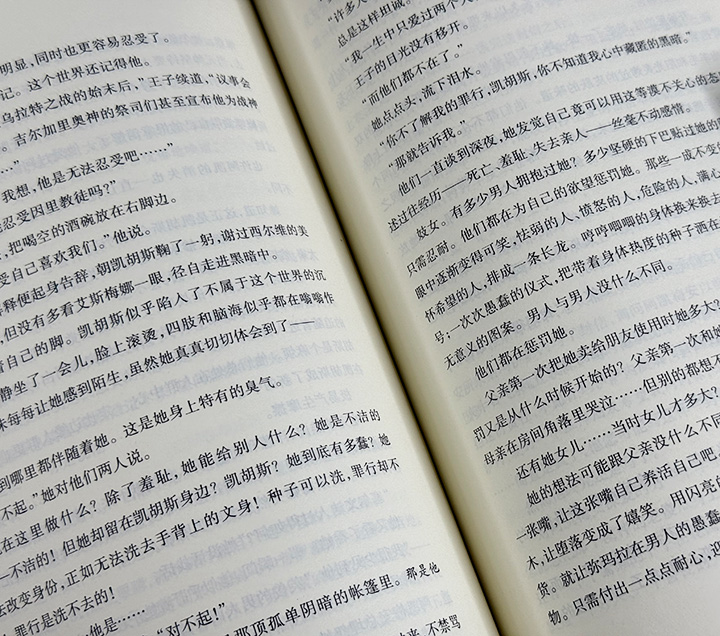 明显，同时也更容易忍受了。
记。这个世界还记得他。
乌拉特之战的始末后，”王子续道，“议事会
。吉尔加里奥神的祭司们甚至宣布他为战神
…”
我想，他是无法忍受吧……”
忍受因里教徒吗？”
，把喝空的酒碗放在右脚边。
受自己喜欢我们。”他说。
释便起身告辞，朝凯胡斯鞠了一躬，谢过西尔维的美
，但没有多看艾斯梅娜一眼，径自走进黑暗中。
着自己的脚。凯胡斯似乎陷入了不属于这个世界的沉
静坐了一会儿，脸上滚烫，四肢和脑海似乎都在嗡嗡作
味每每让她感到陌生，虽然她真真切切体会到了——
到哪里都伴随着她。这是她身上特有的臭气。
不起。”她对他们两人说。
在这里做什么？除了羞耻，她能给别人什么？她是不洁的
—不洁的！但她却留在凯胡斯身边？凯胡斯？她到底有多蠢？她
法改变身份，正如无法洗去手背上的文身！种子可以洗，罪行却不
罪行是洗不去的！
他是……
“对不起！”
那顶孤单阴暗的帐篷里。那是他
不禁骂
“许多人
总是这样坦诚。
“我一生中只爱过两个人
王子的目光没有移开。
“而他们都不在了。”
她点点头，流下泪水。
“你不了解我的罪行，凯胡斯，你不知道我心中藏匿的黑暗。”
“那就告诉我。”
他们一直谈到深夜，她发觉自己竟可以用这等漠不关心的态
述过往经历——死亡、羞耻、失去亲人——丝毫不动感情。
妓女。有多少男人拥抱过她？多少坚硬的下巴贴过她的
只需忍耐。他们都在为自己的欲望惩罚她。那些一成不变的
眼中逐渐变得可笑，怯弱的人、愤怒的人、危险的人，满心
怀希望的人，排成一条长龙。哼哼唧唧的身体换来换去
号；一次次愚蠢的仪式，把带着身体热度的种子洒在
无意义的图案。男人与男人没什么不同。
他们都在惩罚她。
父亲第一次把她卖给朋友使用时她多大？
罚又是从什么时候开始的？父亲第一次和她
母亲在房间角落里哭泣……但别的都想不
还有她女儿……当时女儿才多大？
她的想法可能跟父亲没什么不同
一张嘴，让这张嘴自己养活自己吧。
木，让堕落变成了嬉笑。用闪亮的
货。就让弥玛拉在男人的愚蠢
物。只需付出一点点耐心，迎